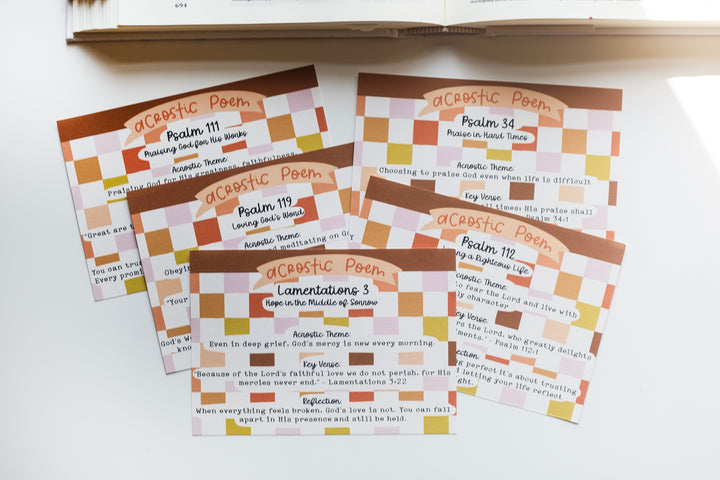 694
acrostic Poem
Psalm 111
Praising God for His Works
Acrostic Theme:
Praising God for His greatness, faithfulness,
"Great are t
You can trus
Every promi
acrostic Poem
Psalm 34
Praise in Hard Times
Acrostic Theme:
Choosing to praise God even when life is difficult
Key Verse:
all times; His praise shall
Psalm 34:1
acrostic Poem
Psalm 119
Loving God's Word
Acrostic Theme:
and meditating on Go
Obeying
"Your
God's Wo
kno
acrostic Poem
Psalm 112
ing a Righteous Life
Acrostic Theme:
to fear the Lord and live with
ly character
Key Verse:
rs the Lord, who greatly delights
ments." - Psalm 112:1
lection:
g perfect it's about trusting
d letting your life reflect
ght.
acrostic Poem
Lamentations 3
Hope in the Middle of Sorrow
Acrostic Theme:
Even in deep grief, God's mercy is new every morning.
Key Verse:
"Because of the Lord's faithful love we do not perish, for His
mercies never end." - Lamentations 3:22
Reflection:
When everything feels broken, God's love is not. You can fall
apart in His presence and still be held.